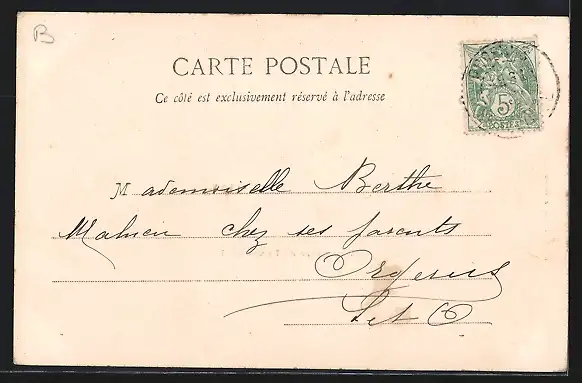 B
CARTE POSTALE
Ce côté est exclusivement réservé à l'adresse
5c
POSTES
Mademoiselle Berthe
Mahieu chez ses parents
Orgerus
S et O